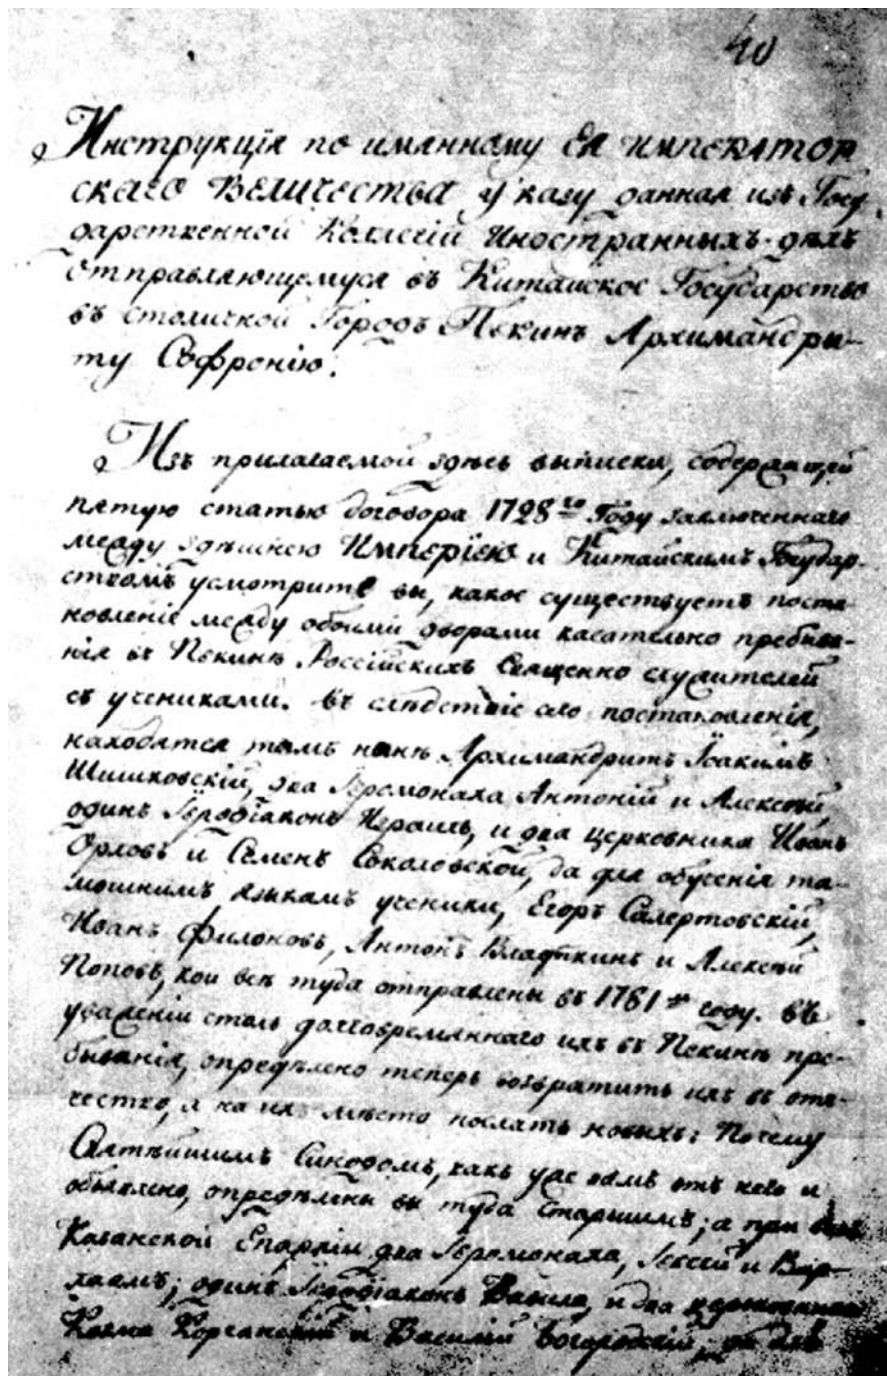 40
Инструкція по имянному ЕЯ ИМПЕРАТОР
СКАГО ВЕЛИЧЕСТВА указу данная изъ Госу
дарственной Коллегіи Иностранныхъ дѣлъ
отправляющемуся въ Китайское Государство
въ столичной Городъ Пекинъ Архимандри-
ту Софронію.
Изъ прилагаемой здѣсь выписки, содержащей
пятую статью договора 1728го Году заключеннаго
между здѣшнею ИМПЕРІЕЮ и Китайскимъ Государ-
ствомъ усмотрите вы, какое существуетъ поста-
новленіе между обоими дворами касательно пребыва-
нія въ Пекинѣ Россійскихъ Священно служителей
съ учениками. Въ слѣдствіе сего постановленія,
находятся тамъ нынѣ Архимандритъ Іоакимъ
Шишковскій, два Іеромонаха Антоній и Алексѣй,
одинъ Іеродіаконъ и два церковника Иванъ
Орловъ и Семенъ Соколовской, да для обученія та-
мошнимъ языкамъ ученики, Егоръ Салертовскій,
Иванъ Филоновъ, Антонъ Владыкинъ и Алексѣй
Поповъ, кои всѣ туда отправлены въ 1781м году. Въ
уваженіи столь долговременнаго ихъ въ Пекинѣ пре-
быванія, опредѣлено теперь возвратить ихъ въ оте-
чество, а на ихъ мѣсто послать новыхъ: Почему
Святѣйшимъ Синодомъ, какъ уже вамъ отъ него и
объявлено, опредѣлены вы туда Старшимъ; а при васъ
Казанской Епархіи два Іеромонаха, Іессей и Вар-
лаамъ; одинъ Іеродіаконъ и два церковника
Козма Каргинскій и Василій Богородскій, да для